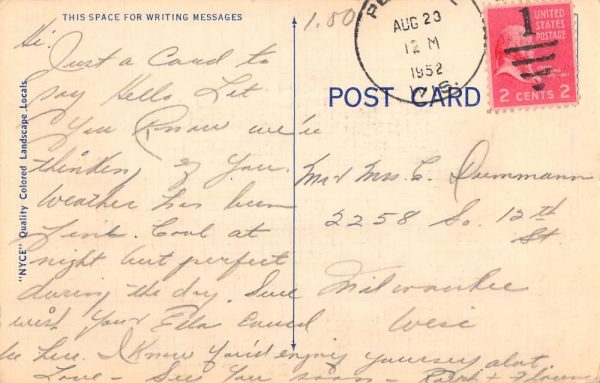 THIS SPACE FOR WRITING MESSAGES
Hi,
Just a Card to
say Hello. Let
You Know we're
thinking of You.
Weather has been
fine. Cool at
night but perfect
during the day. Sure
wish You & Ella could
be here. I Know You'd enjoy yourself alot.
Love - See You soon - Ralph &
"NYCE" Quality Colored Landscape Locals.
1.80
AUG 23
12 M
1952
WIS.
1
UNITED
STATES
POSTAGE
2 CENTS 2
POST CARD
Mr & Mrs. C.
2258 So. 12th
St
Milwaukee
Wisc